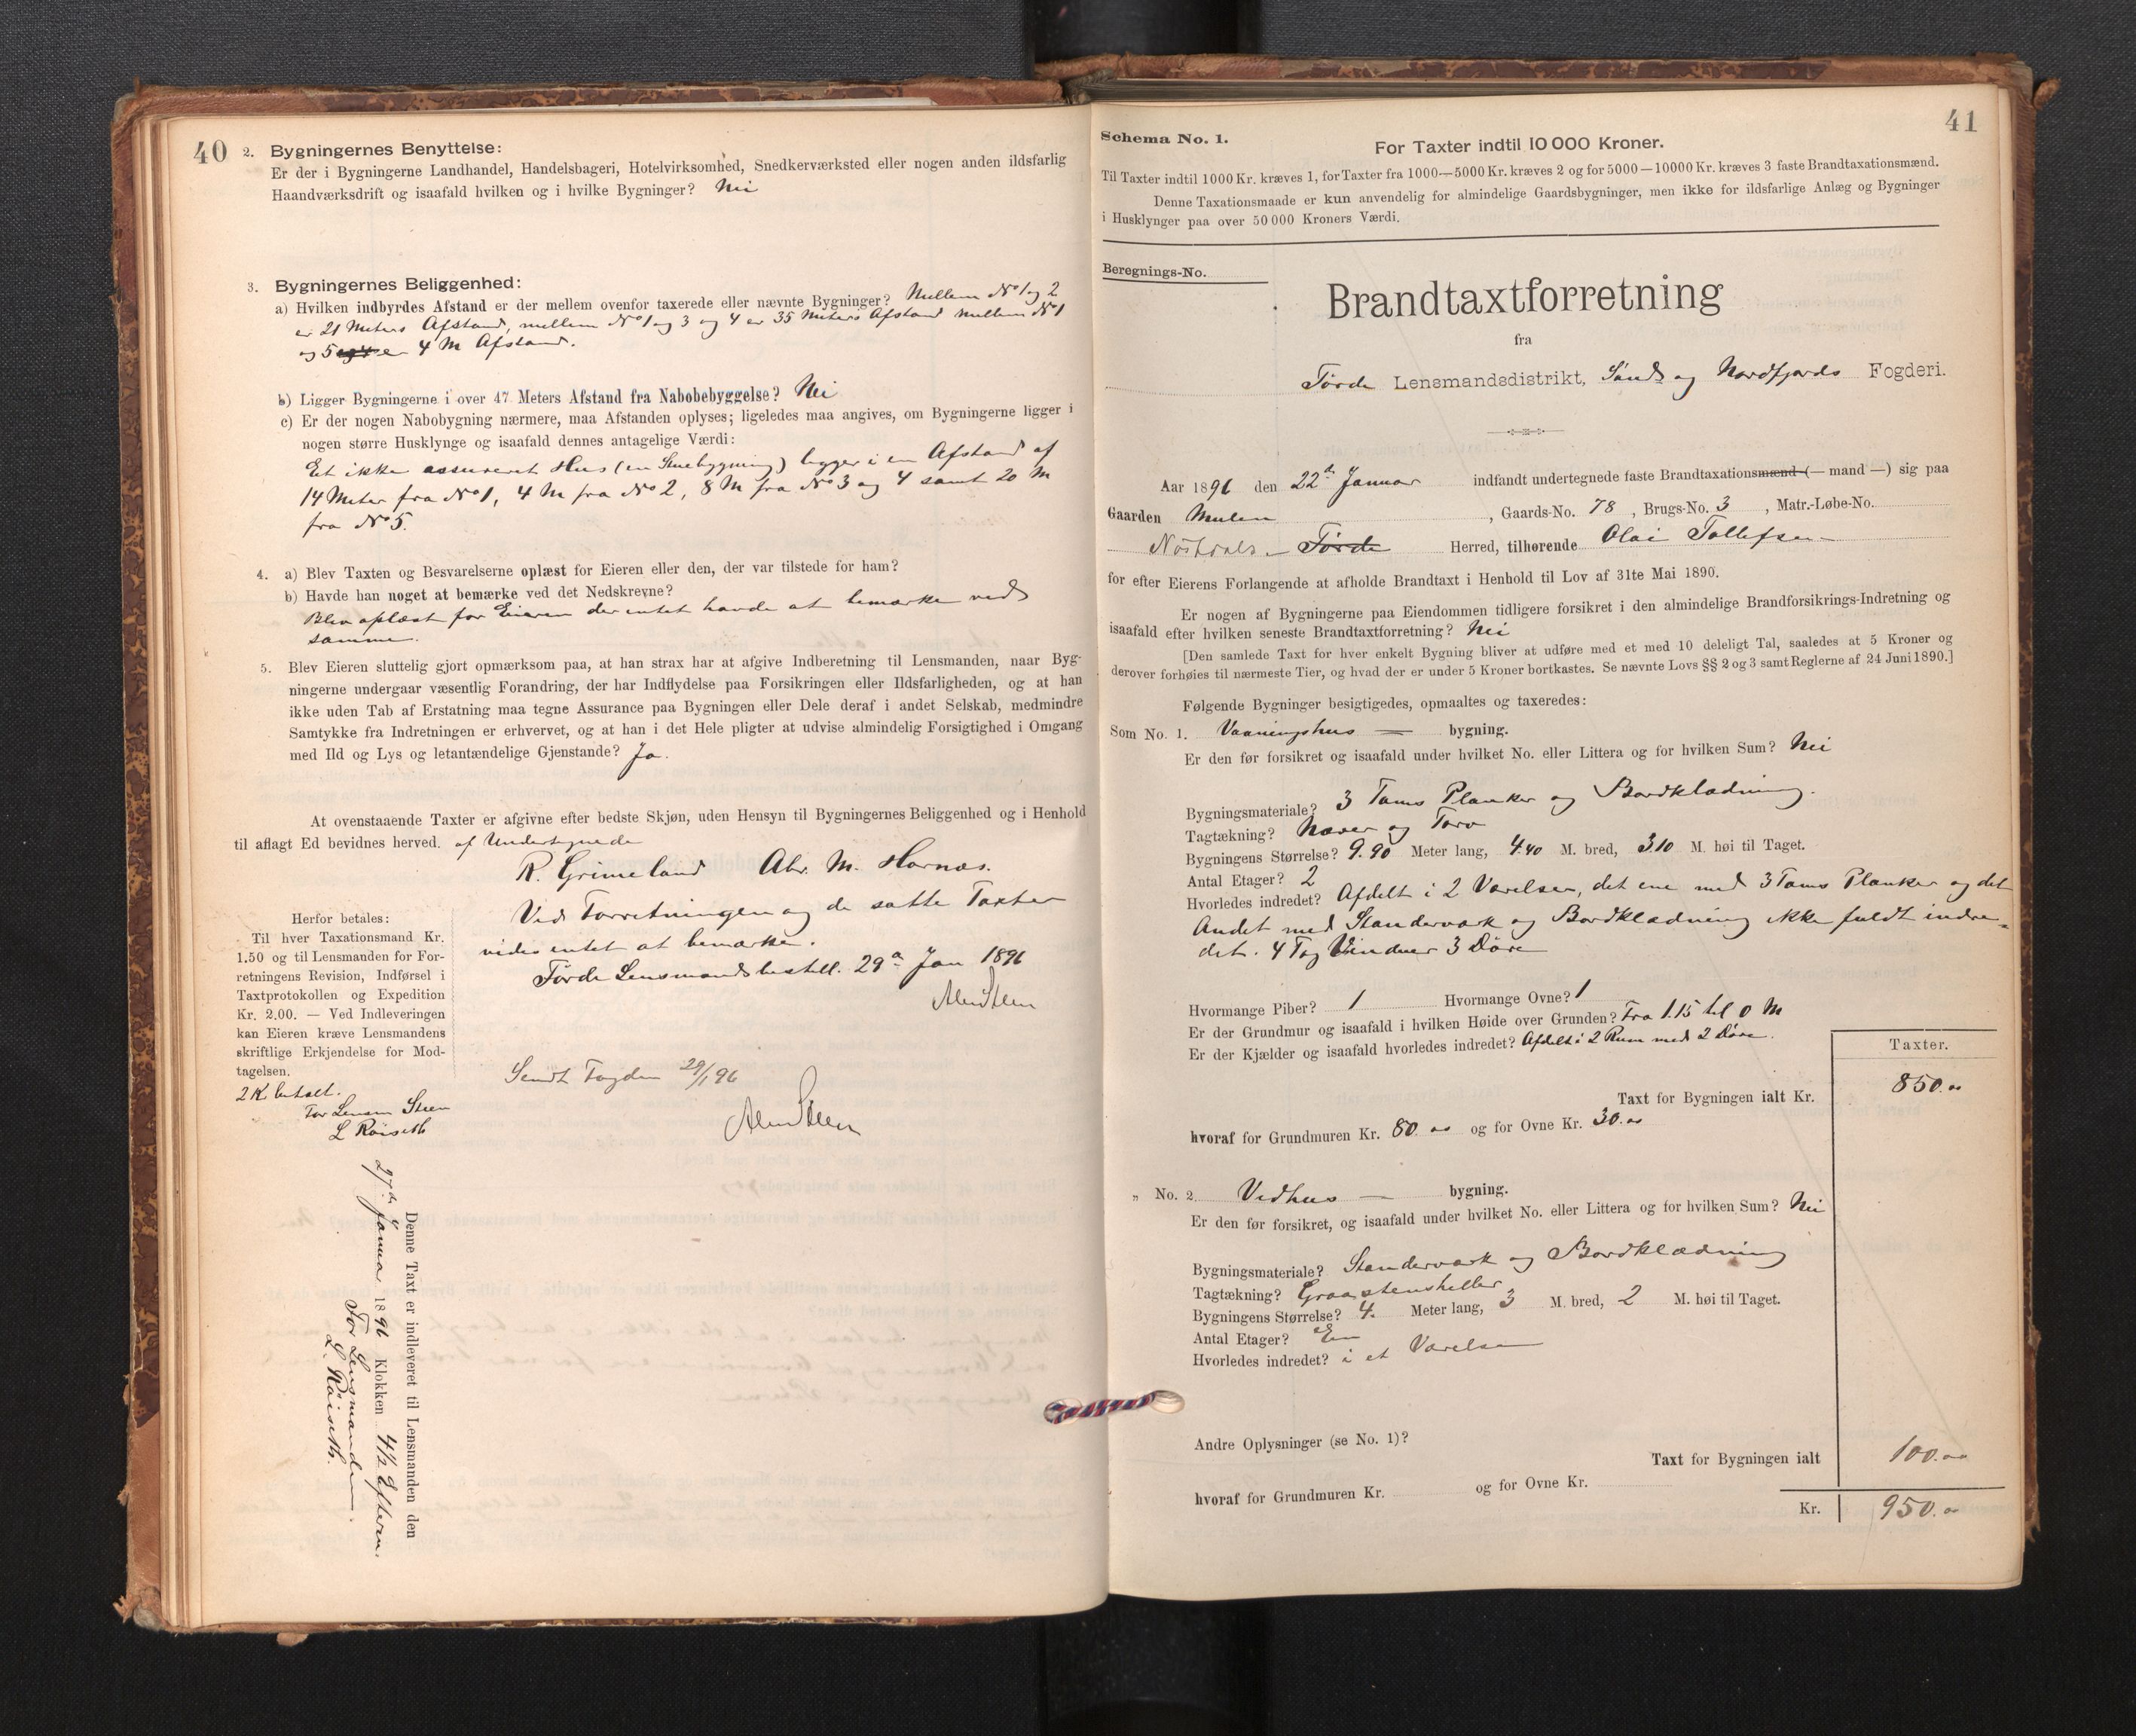 40
2. Bygningernes Benyttelse:
Er der i Bygningerne Landhandel, Handelsbageri, Hotelvirksomhed, Snedkerværksted eller nogen anden ildsfarlig
Haandværksdrift og isaafald hvilken og i hvilke Bygninger? Nei
3. Bygningernes Beliggenhed:
a) Hvilken indbyrdes Afstand er der mellem ovenfor taxerede eller nævnte Bygninger? Mellem No 1 og 2
er 21 Meters Afstand, mellem No 1 og 3 og 4 er 35 Meters Afstand mellem No 1
og 5 og 4 er 4 M Afstand.
b) Ligger Bygningerne i over 47 Meters Afstand fra Nabobebyggelse? Nei
c) Er der nogen Nabobygning nærmere, maa Afstanden oplyses; ligeledes maa angives, om Bygningerne ligger i
nogen større Husklynge og isaafald dennes antagelige Værdi:
Et ikke assureret Hus (en Stuebygning) ligger i en Afstand af
14 Meter fra No 1, 4 M fra No 2, 8 M fra No 3 og 4 samt 20 M
fra No 5.
4. a) Blev Taxten og Besvarelserne oplæst for Eieren eller den, der var tilstede for ham?
b) Havde han noget at bemærke ved det Nedskrevne?
Blev oplæst for Eieren der intet havde at bemærke ved
samme.
5. Blev Eieren sluttelig gjort opmærksom paa, at han strax har at afgive Indberetning til Lensmanden, naar Byg-
ningerne undergaar væsentlig Forandring, der har Indflydelse paa Forsikringen eller Ildsfarligheden, og at han
ikke uden Tab af Erstatning maa tegne Assurance paa Bygningen eller Dele deraf i andet Selskab, medmindre
Samtykke fra Indretningen er erhvervet, og at han i det Hele pligter at udvise almindelig Forsigtighed i Omgang
med Ild og Lys og letantændelige Gjenstande? Ja.
At ovenstaaende Taxter er afgivne efter bedste Skjøn, uden Hensyn til Bygningernes Beliggenhed og i Henhold
til aflagt Ed bevidnes herved. af Undertegnede
R. Grimeland Abr. M. Hornæs.
Ved Forretningen og de satte Taxter
vides intet at bemærke.
Førde Lensmandsbestill. 29de Jan 1896
Herfor betales:
Til hver Taxationsmand Kr.
1.50 og til Lensmanden for For-
retningens Revision, Indførsel i
Taxtprotokollen og Expedition
Kr. 2.00. — Ved Indleveringen
kan Eieren kræve Lensmandens
skriftlige Erkjendelse for Mod-
tagelsen.
2 K. betalt.
For Lensm Steen
L Røiseth
Sendt Fogden 29/1 96
Denne Taxt er indleveret til Lensmanden den
27de Januar 1896 Klokken 4 1/2 Efterm.
For Lensmanden.
L. Røiseth.
41
Schema No. 1.
For Taxter indtil 10 000 Kroner.
Til Taxter indtil 1000 Kr. kræves 1, for Taxter fra 1000—5000 Kr. kræves 2 og for 5000—10000 Kr. kræves 3 faste Brandtaxationsmænd.
Denne Taxationsmaade er kun anvendelig for almindelige Gaardsbygninger, men ikke for ildsfarlige Anlæg og Bygninger
i Husklynger paa over 50 000 Kroners Værdi.
Beregnings-No.
Brandtaxtforretning
fra
Førde Lensmandsdistrikt, Sønd- og Nordfjords Fogderi.
Aar 1896 den 22de Januar indfandt undertegnede faste Brandtaxationsmænd (— mand —) sig paa
Gaarden Mulen, Gaards-No. 78, Brugs-No. 3, Matr.-Løbe-No.
Nøstdals Førde Herred, tilhørende Olai Tollefsen
for efter Eierens Forlangende at afholde Brandtaxt i Henhold til Lov af 31te Mai 1890.
Er nogen af Bygningerne paa Eiendommen tidligere forsikret i den almindelige Brandforsikrings-Indretning og
isaafald efter hvilken seneste Brandtaxtforretning? Nei
[Den samlede Taxt for hver enkelt Bygning bliver at udføre med et med 10 deleligt Tal, saaledes at 5 Kroner og
derover forhøies til nærmeste Tier, og hvad der er under 5 Kroner bortkastes. Se nævnte Lovs §§ 2 og 3 samt Reglerne af 24 Juni 1890.]
Følgende Bygninger besigtigedes, opmaaltes og taxeredes:
Som No. 1. Vaaningshus bygning.
Er den før forsikret og isaafald under hvilket No. eller Littera og for hvilken Sum? Nei
Bygningsmateriale? 3 Toms Planker og Bordklædning.
Tagtækning? Næver og Torv
Bygningens Størrelse? 9.90 Meter lang, 4.40 M. bred, 3.10 M. høi til Taget.
Antal Etager? 2
Hvorledes indredet? Afdelt i 2 Værelser, det ene med 3 Toms Planker og det
Andet med Standerværk og Bordklædning ikke fuldt indre-
det. 4 Fag Vinduer 3 Døre
Hvormange Piber? 1 Hvormange Ovne? 1
Er der Grundmur og isaafald i hvilken Høide over Grunden? Fra 1.15 til 0 M
Er der Kjælder og isaafald hvorledes indredet? Afdelt i 2 Rum med 2 Døre.
Taxter.
Taxt for Bygningen ialt Kr. 850.00
hvoraf for Grundmuren Kr. 80.00 og for Ovne Kr. 30.00
„ No. 2 Vedhus bygning.
Er den før forsikret, og isaafald under hvilket No. eller Littera og for hvilken Sum? Nei
Bygningsmateriale? Standerværk og Bordklædning
Tagtækning? Graastensheller
Bygningens Størrelse? 4. Meter lang, 3 M. bred, 2 M. høi til Taget.
Antal Etager? En
Hvorledes indredet? i et Værelse
Andre Oplysninger (se No. 1)?
Taxt for Bygningen ialt 100.00
hvoraf for Grundmuren Kr. og for Ovne Kr.
Kr. 950.00